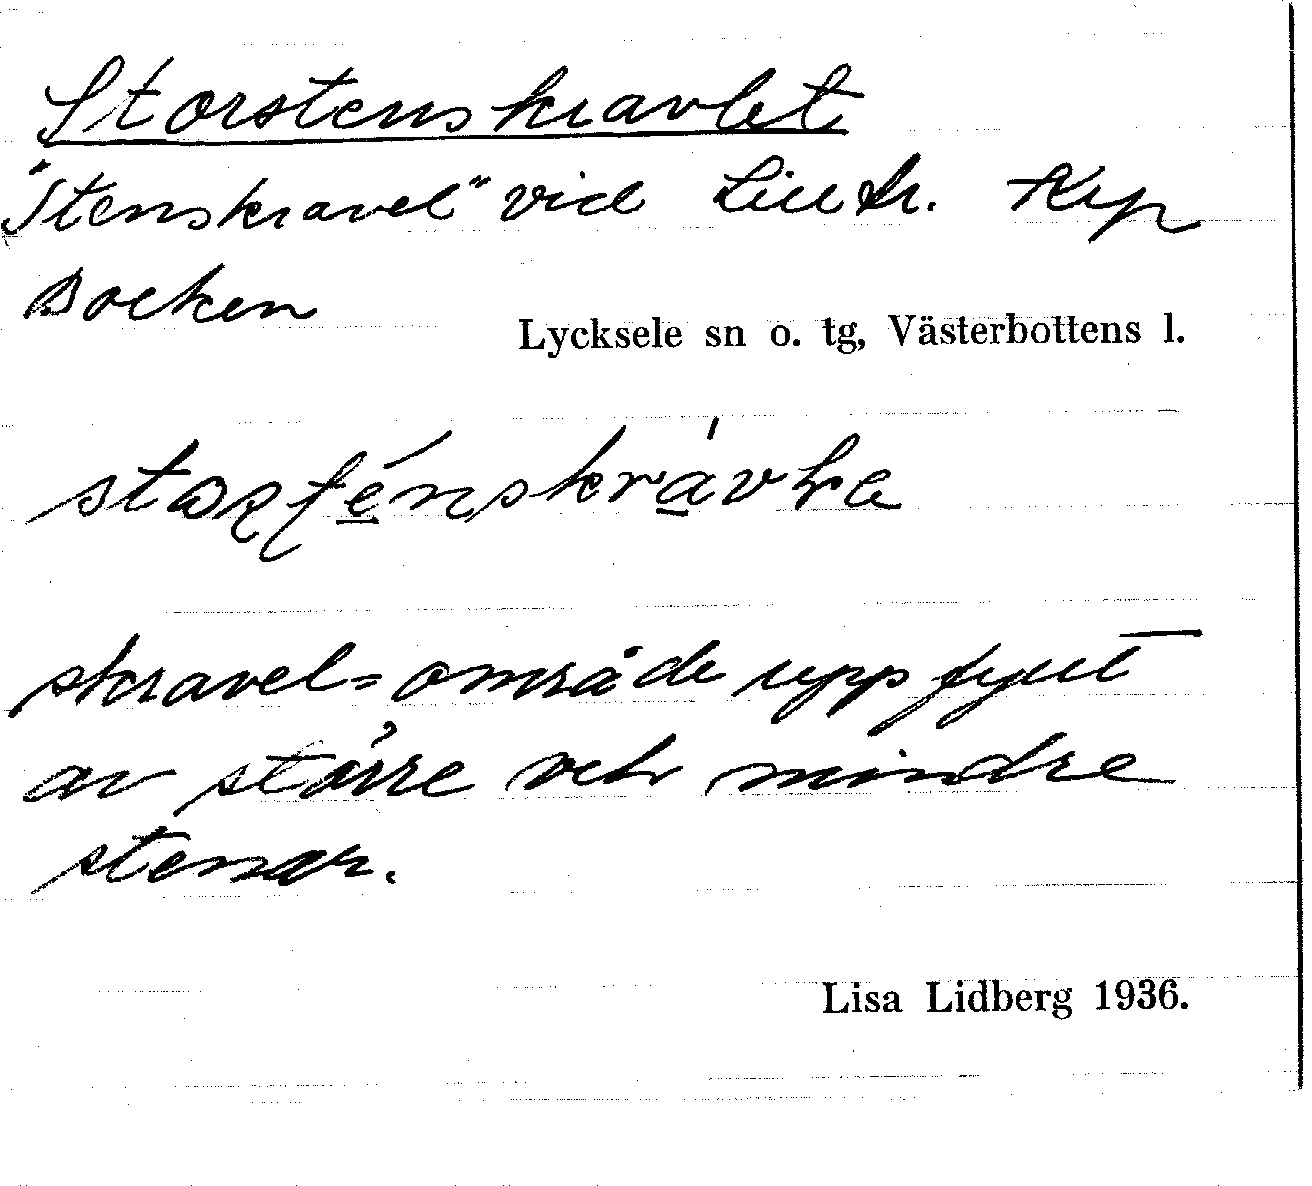 Storstenskravlet
"Stenskravel" vid Lill tr. Kyp
Bocken
Lycksele sn o. tg, Västerbottens l.
skravel=område uppfyllt
av större och mindre
stenar.
Lisa Lidberg 1936.